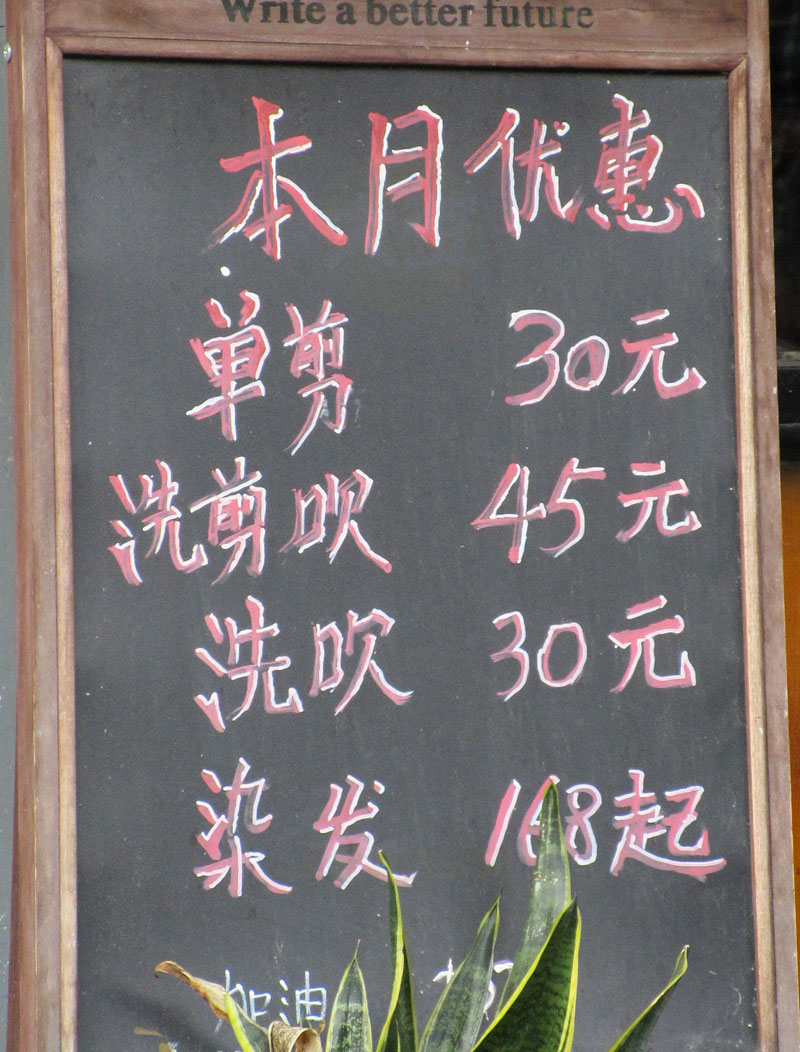 Write a better future
本月优惠
单剪 30元
洗剪吹 45元
洗吹 30元
染发 168起
加油